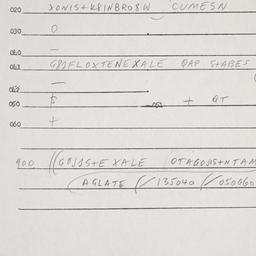 020 XONIS+K8INBRO8W CUMESN
030 O
040 —
041 GPJFLOXTENEXALE QAP S+ABES
048 —
050 F 053 + QT
060 +
900 ((GPJJS+E XALE OTAGOJJS+NTAM
(AGLATE (/135040 (/050060